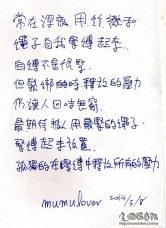 常在深夜用絲襪和
繩子自我緊縛起來.
自縛不是很緊.
但緊綁的時,釋放的壓力
仍讓人回味無窮.
最期待被人用最緊的繩子.
緊縛起來放置.
孤獨的在緊縛中釋放所有的壓力
mumulover 2014/2/8